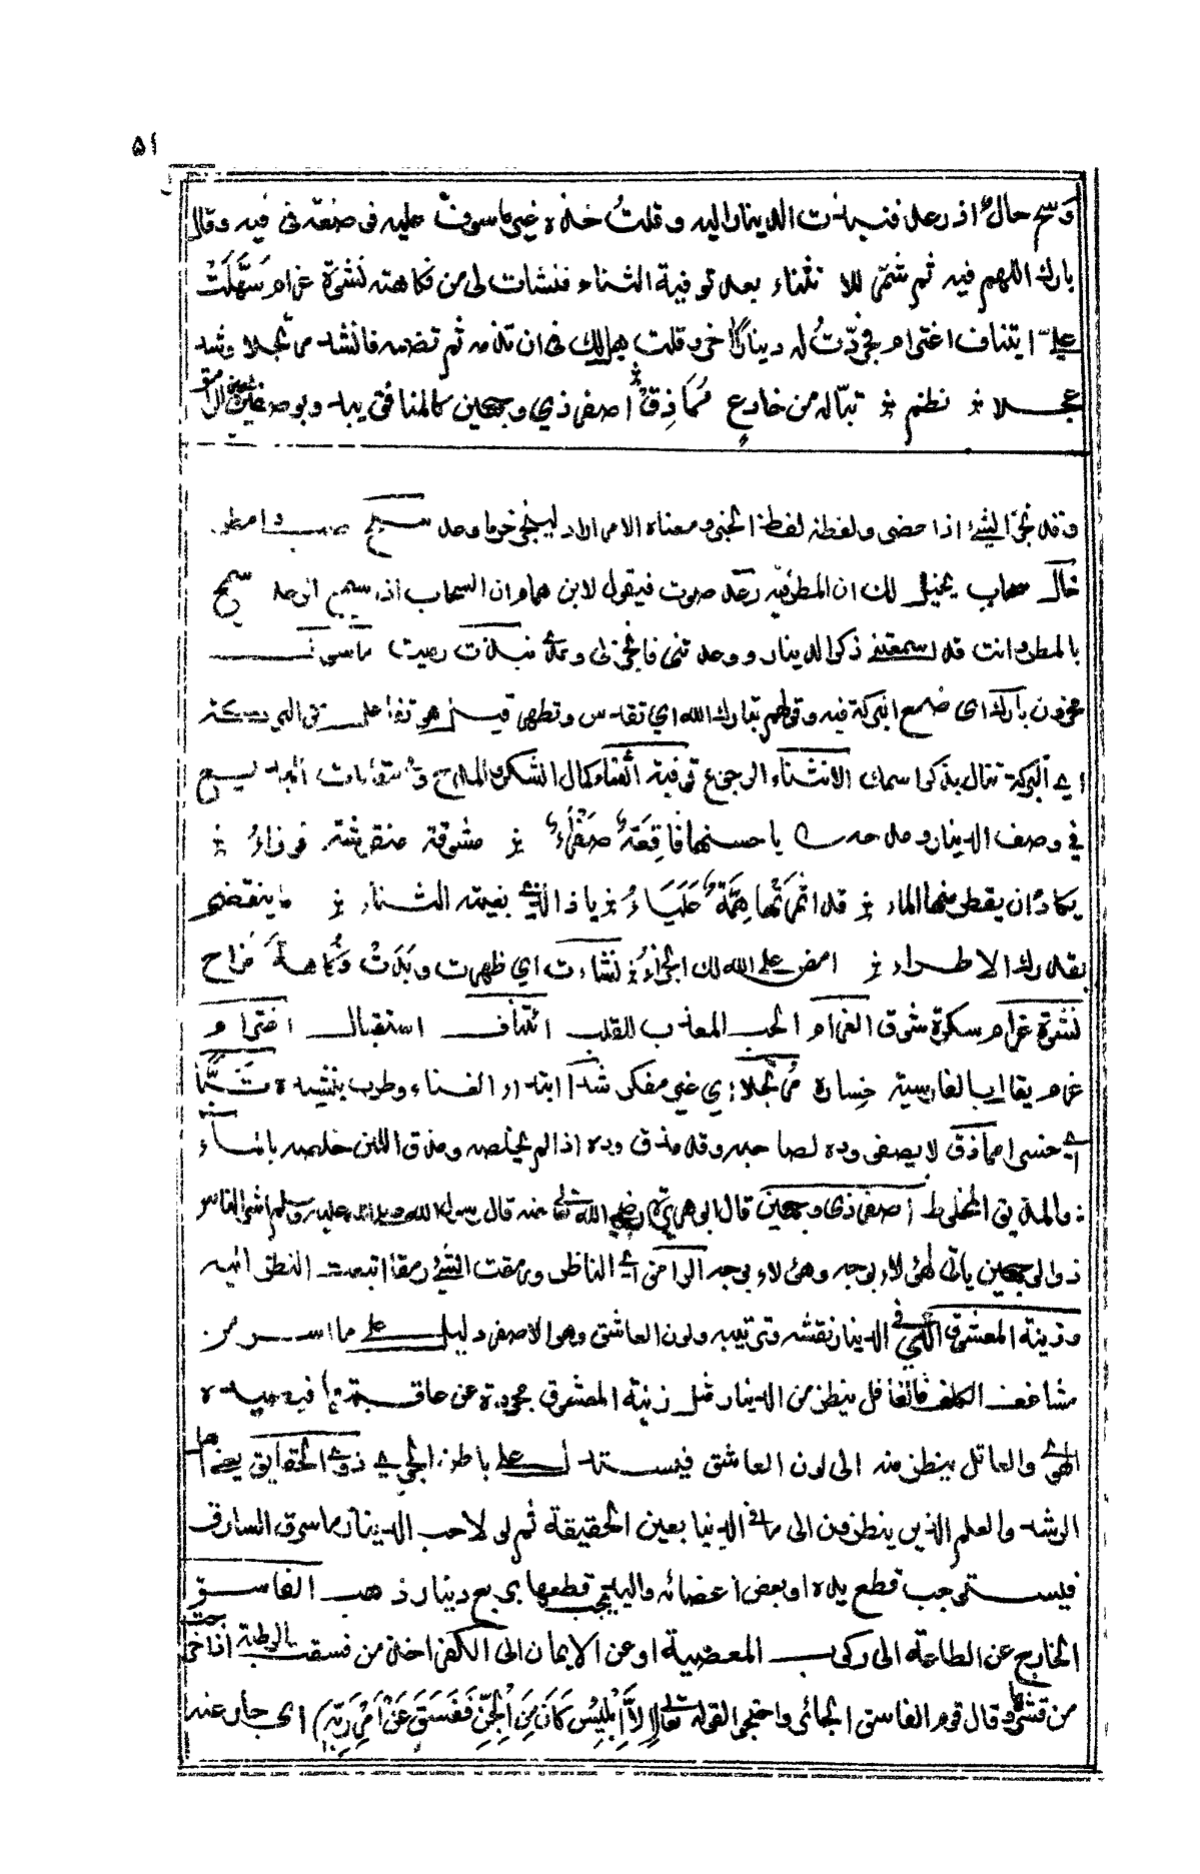 ٥١
وسح خال اذ رعد فنبذت الدينار اليه وقلت خذه غير ماسوف عليه فوضعه فى فيه وقال
بارك اللهم فيه ثم شمر للانثناء بعد توفية الثناء فنشات لى من فكاهته نشوة غرام سهلت
على ايتناف اغترام فجردت له دينارا اخر وقلت هل لك فى ان تذمه ثم تضمه فانشد مرتجلا وشدا
عجلا نظم تبا له من خادع مماذق اصفر ذى وجهين كالمنافق يبدو بوصفين لعين الرامق
وقد نجز الشئ اذا حضر ولفظه لفظ الخبر ومعناه الامر اى لينجز حر ما وعد سح صب
خال سحاب يخيل لك ان المطر فيه رعد صوت فيقول لابن همام ان السحاب اذا سمع الرعد سح
بالمطر وانت قد اسمعتنى ذكر الدينار ووعدتنى فانجز لى وعدك نبذت رميت ماسوف
محزون بارك اى ضع البركة فيه وقولهم تبارك الله اى تقدس وتطهر
اى البركة تنال بذكر اسمك الانثناء الرجوع توفية الثناء كمال الشكر والمدح
فى وصف الدينار يا حسنها فاقعة صفراء مشوقة منقوشة
يكاد ان يقطر منها الماء قد اثمرتها همة علياء يا ذا الذى بغيته الثناء ما ينقضى
بقدرك الاطراء امض على الله لك الجزاء نشات اى ظهرت وبدت فكاهة مزاح
نشوة غرام سكرة شوق الغرام الحب المعذب للقلب ائتناف استقبال اغترام
غرم يقال بالفارسية خساره مرتجلا اى غير مفكر شدا ابتدا الغناء وطرب بنشيده تبا
اى خسرا مماذق لا يصفى وده لصاحبه وقد مذق وده اذا لم يخلصه ومذق اللبن خلطه بالماء
والمذيق المخلوط اصفر ذى وجهين قال ابو هريرة رضى الله تعالى عنه قال رسول الله صلى الله عليه وسلم شر الناس
ذو الوجهين ياتى هؤلاء بوجه وهؤلاء بوجه الرامق اى الناظر ورمقت الشئ رمقا اتبعت النظر اليه
وزينة المعشوق التى فى الدينار نقشه وتزيينه ولون العاشق وهو الاصفر دليل على ما
فالغافل ينظر من الدينار مثل زينة المعشوق مجردة عن عاقبة ما فيه
الهوى والعاقل ينظر منه الى لون العاشق فيستدل على باطنه ذوى الحقايق يعنى اهل
الرشد والعلم الذين ينظرون الى ما فى الدنيا بعين الحقيقة ثم لولا حب الدينار ما سرق السارق
فيستوجب قطع يده او بعض اعضائه واليد يجب قطعها بربع دينار ذهب الفاسق
الخارج عن الطاعة الى ركوب المعصية او عن الايمان الى الكفر اخذ من فسقت الرطبة اذا خرجت
من قشرها وقال قوم الفاسق الجائر واحتج القوله تعالى (الا ابليس كان من الجن ففسق عن امر ربه) اى جار عنه